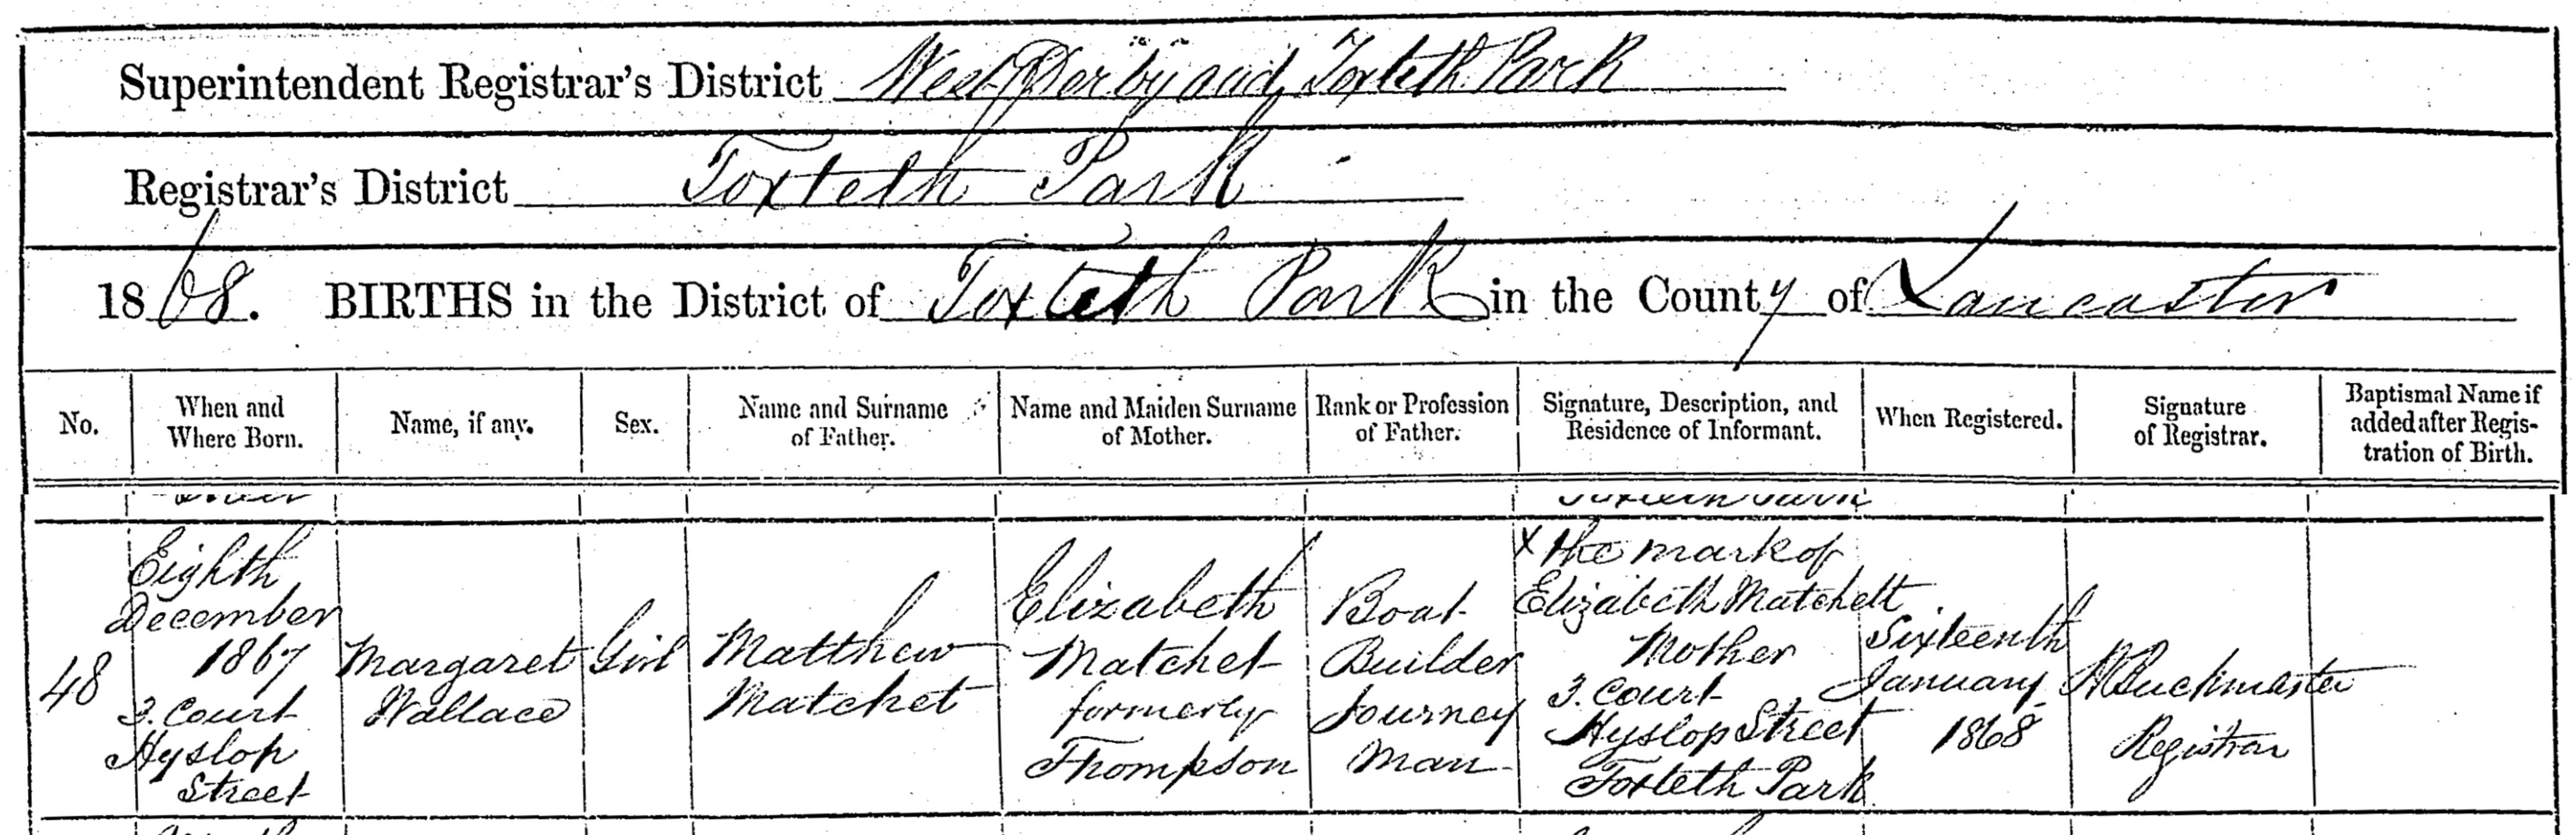 Superintendent Registrar's District West Derby and Toxteth Park
Registrar's District Toxteth Park
1868. BIRTHS in the District of Toxteth Park in the County of Lancaster
No.
When and
Where Born.
Name, if any.
Sex.
Name and Surname
of Father.
Name and Maiden Surname
of Mother.
Rank or Profession
of Father.
Signature, Description, and
Residence of Informant.
When Registered.
Signature
of Registrar.
Baptismal Name if
added after Regis-
tration of Birth.
48
Eighth
December
1867
3. Court
Hyslop
Street
Margaret
Wallace
Girl
Matthew
Matchet
Elizabeth
Matchet
formerly
Thompson
Boat
Builder
Journey
Man
X the mark of
Elizabeth Matchett
Mother
3. Court
Hyslop Street
Toxteth Park
Sixteenth
January
1868
Buckmaster
Registrar